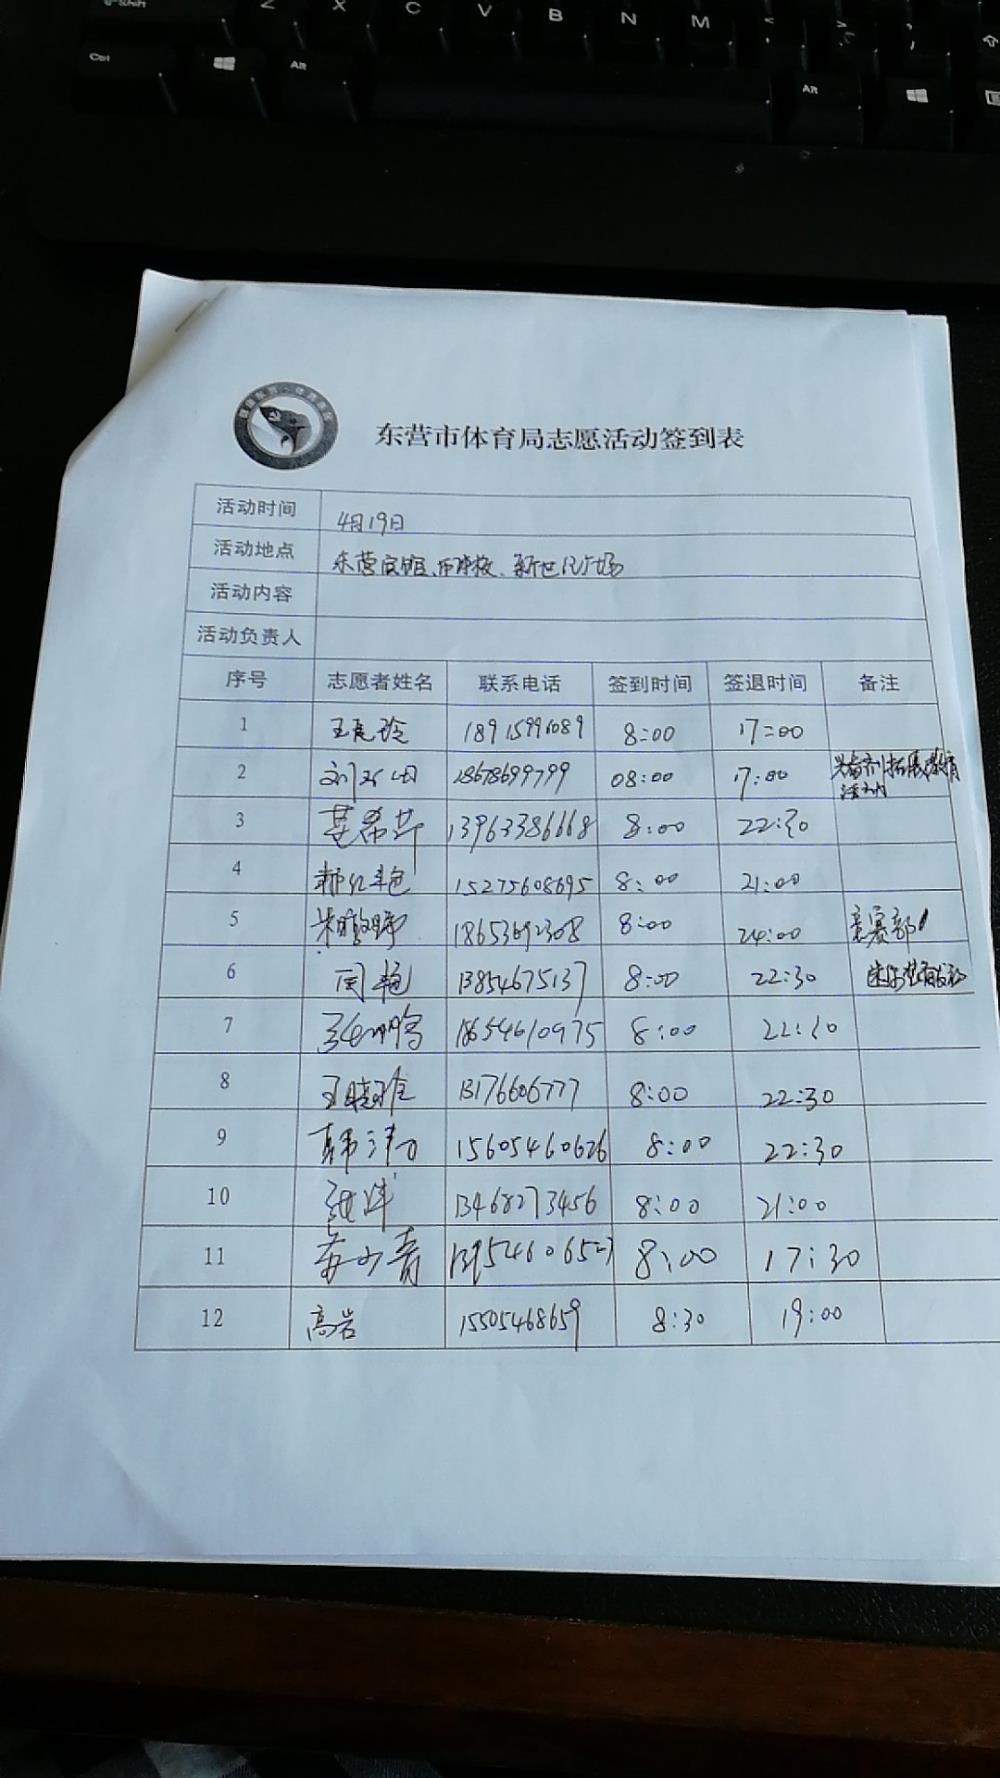 Z X C V B N M
Ctrl Alt Alt
东营市体育局志愿活动签到表
活动时间 4月19日
活动地点 东营宾馆、市体校、新世纪广场
活动内容
活动负责人
序号 志愿者姓名 联系电话 签到时间 签退时间 备注
1 18915991089 8:00 17:00
2 18678699799 08:00 17:00
3 13963386668 8:00 22:30
4 15275608695 8:00 21:00
5 18653692308 8:00 24:00 竞赛部
6 周艳 13854675137 8:00 22:30
7 18654610975 8:00 22:30
8 王晓雅 13176606777 8:00 22:30
9 15605460626 8:00 22:30
10 13468273456 8:00 21:00
11 8:00 17:30
12 高岩 15505468659 8:30 19:00